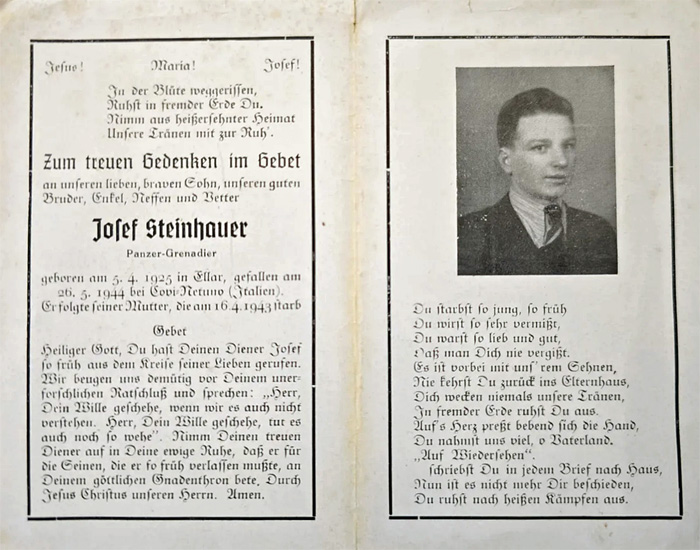 Jesus! Maria! Josef!
In der Blüte weggerissen,
Ruhst in fremder Erde Du.
Nimm aus heißersehnter Heimat
Unsere Tränen mit zur Ruh'.
Zum treuen Gedenken im Gebet
an unseren lieben, braven Sohn, unseren guten
Bruder, Enkel, Neffen und Vetter
Josef Steinhauer
Panzer-Grenadier
geboren am 5. 4. 1925 in Ellar, gefallen am
26. 5. 1944 bei Covi-Netuno (Italien).
Er folgte seiner Mutter, die am 16.4.1943 starb
Gebet
Heiliger Gott, Du hast Deinen Diener Josef
so früh aus dem Kreise seiner Lieben gerufen.
Wir beugen uns demütig vor Deinem uner-
forschlichen Ratschluß und sprechen: „Herr,
Dein Wille geschehe, wenn wir es auch nicht
verstehen. Herr, Dein Wille geschehe, tut es
auch noch so wehe". Nimm Deinen treuen
Diener auf in Deine ewige Ruhe, daß er für
die Seinen, die er so früh verlassen mußte, an
Deinem göttlichen Gnadenthron bete. Durch
Jesus Christus unseren Herrn. Amen.
Du starbst so jung, so früh
Du wirst so sehr vermißt,
Du warst so lieb und gut,
Daß man Dich nie vergißt.
Es ist vorbei mit uns'rem Sehnen,
Nie kehrst Du zurück ins Elternhaus,
Dich wecken niemals unsere Tränen,
In fremder Erde ruhst Du aus.
Auf's Herz preßt bebend sich die Hand,
Du nahmst uns viel, o Vaterland.
„Auf Wiedersehen".
schriebst Du in jedem Brief nach Haus,
Nun ist es nicht mehr Dir beschieden,
Du ruhst nach heißen Kämpfen aus.